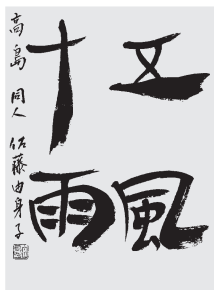 五風
十雨
高島 同人 佐藤由身子